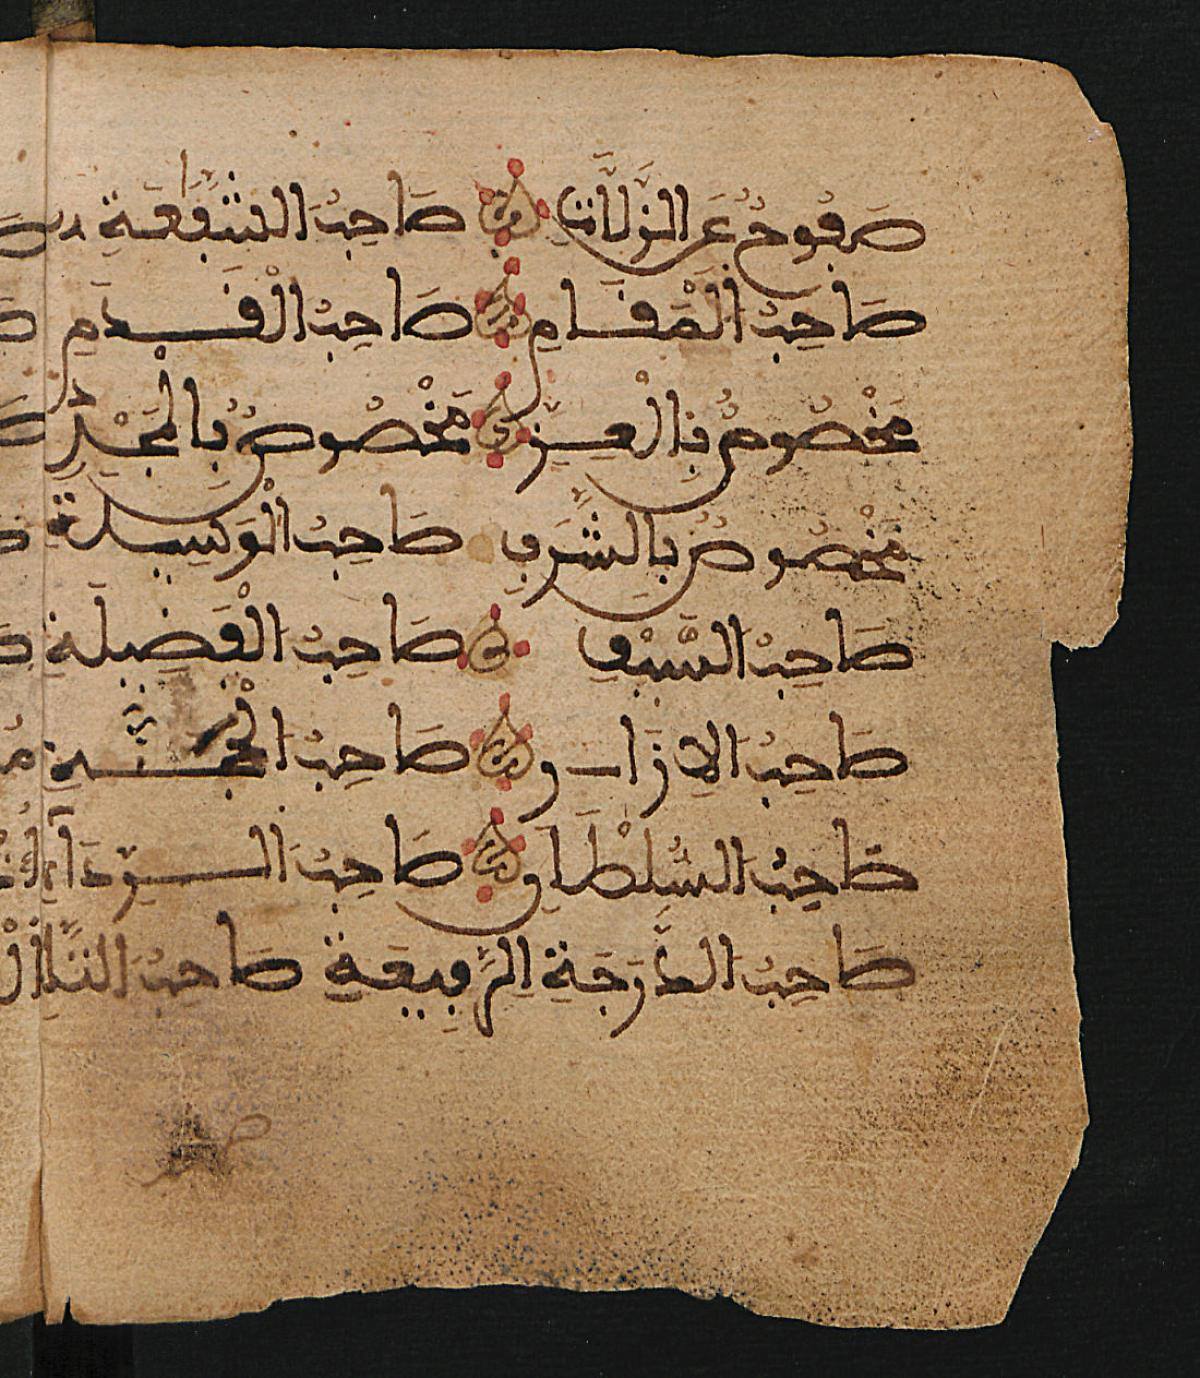 صَفُوحٌ عَنِ الزَّلَّاتِ صَاحِبُ الشَّفَاعَةِ
صَاحِبُ الْمَقَامِ صَاحِبُ الْقَدَمِ
مَخْصُوصٌ بِالْعِزِّ مَخْصُوصٌ بِالْمَجْدِ
مَخْصُوصٌ بِالشَّرَفِ صَاحِبُ الْوَسِيلَةِ
صَاحِبُ السَّيْفِ صَاحِبُ الْفَضِيلَةِ
صَاحِبُ الْإِزَارِ صَاحِبُ الْحُجَّةِ
صَاحِبُ السُّلْطَانِ صَاحِبُ الرِّدَاءِ
صَاحِبُ الدَّرَجَةِ الرَّفِيعَةِ صَاحِبُ التَّاجِ